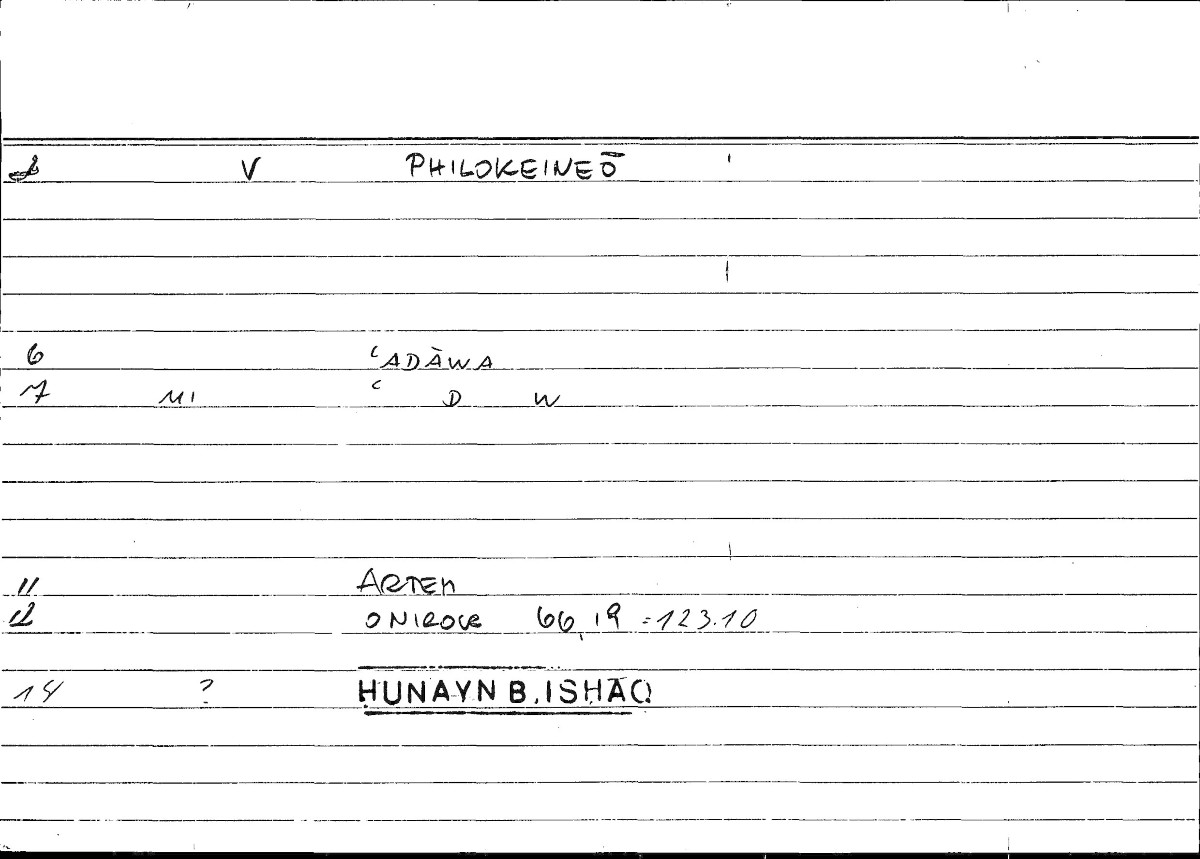 V PHILOKEINEŌ
6 ʿADĀWA
7 MI ʿ D W
11 ARTEM
12 ONIROCR 66,19 = 123.10
14 ? HUNAYN B. ISHĀQ